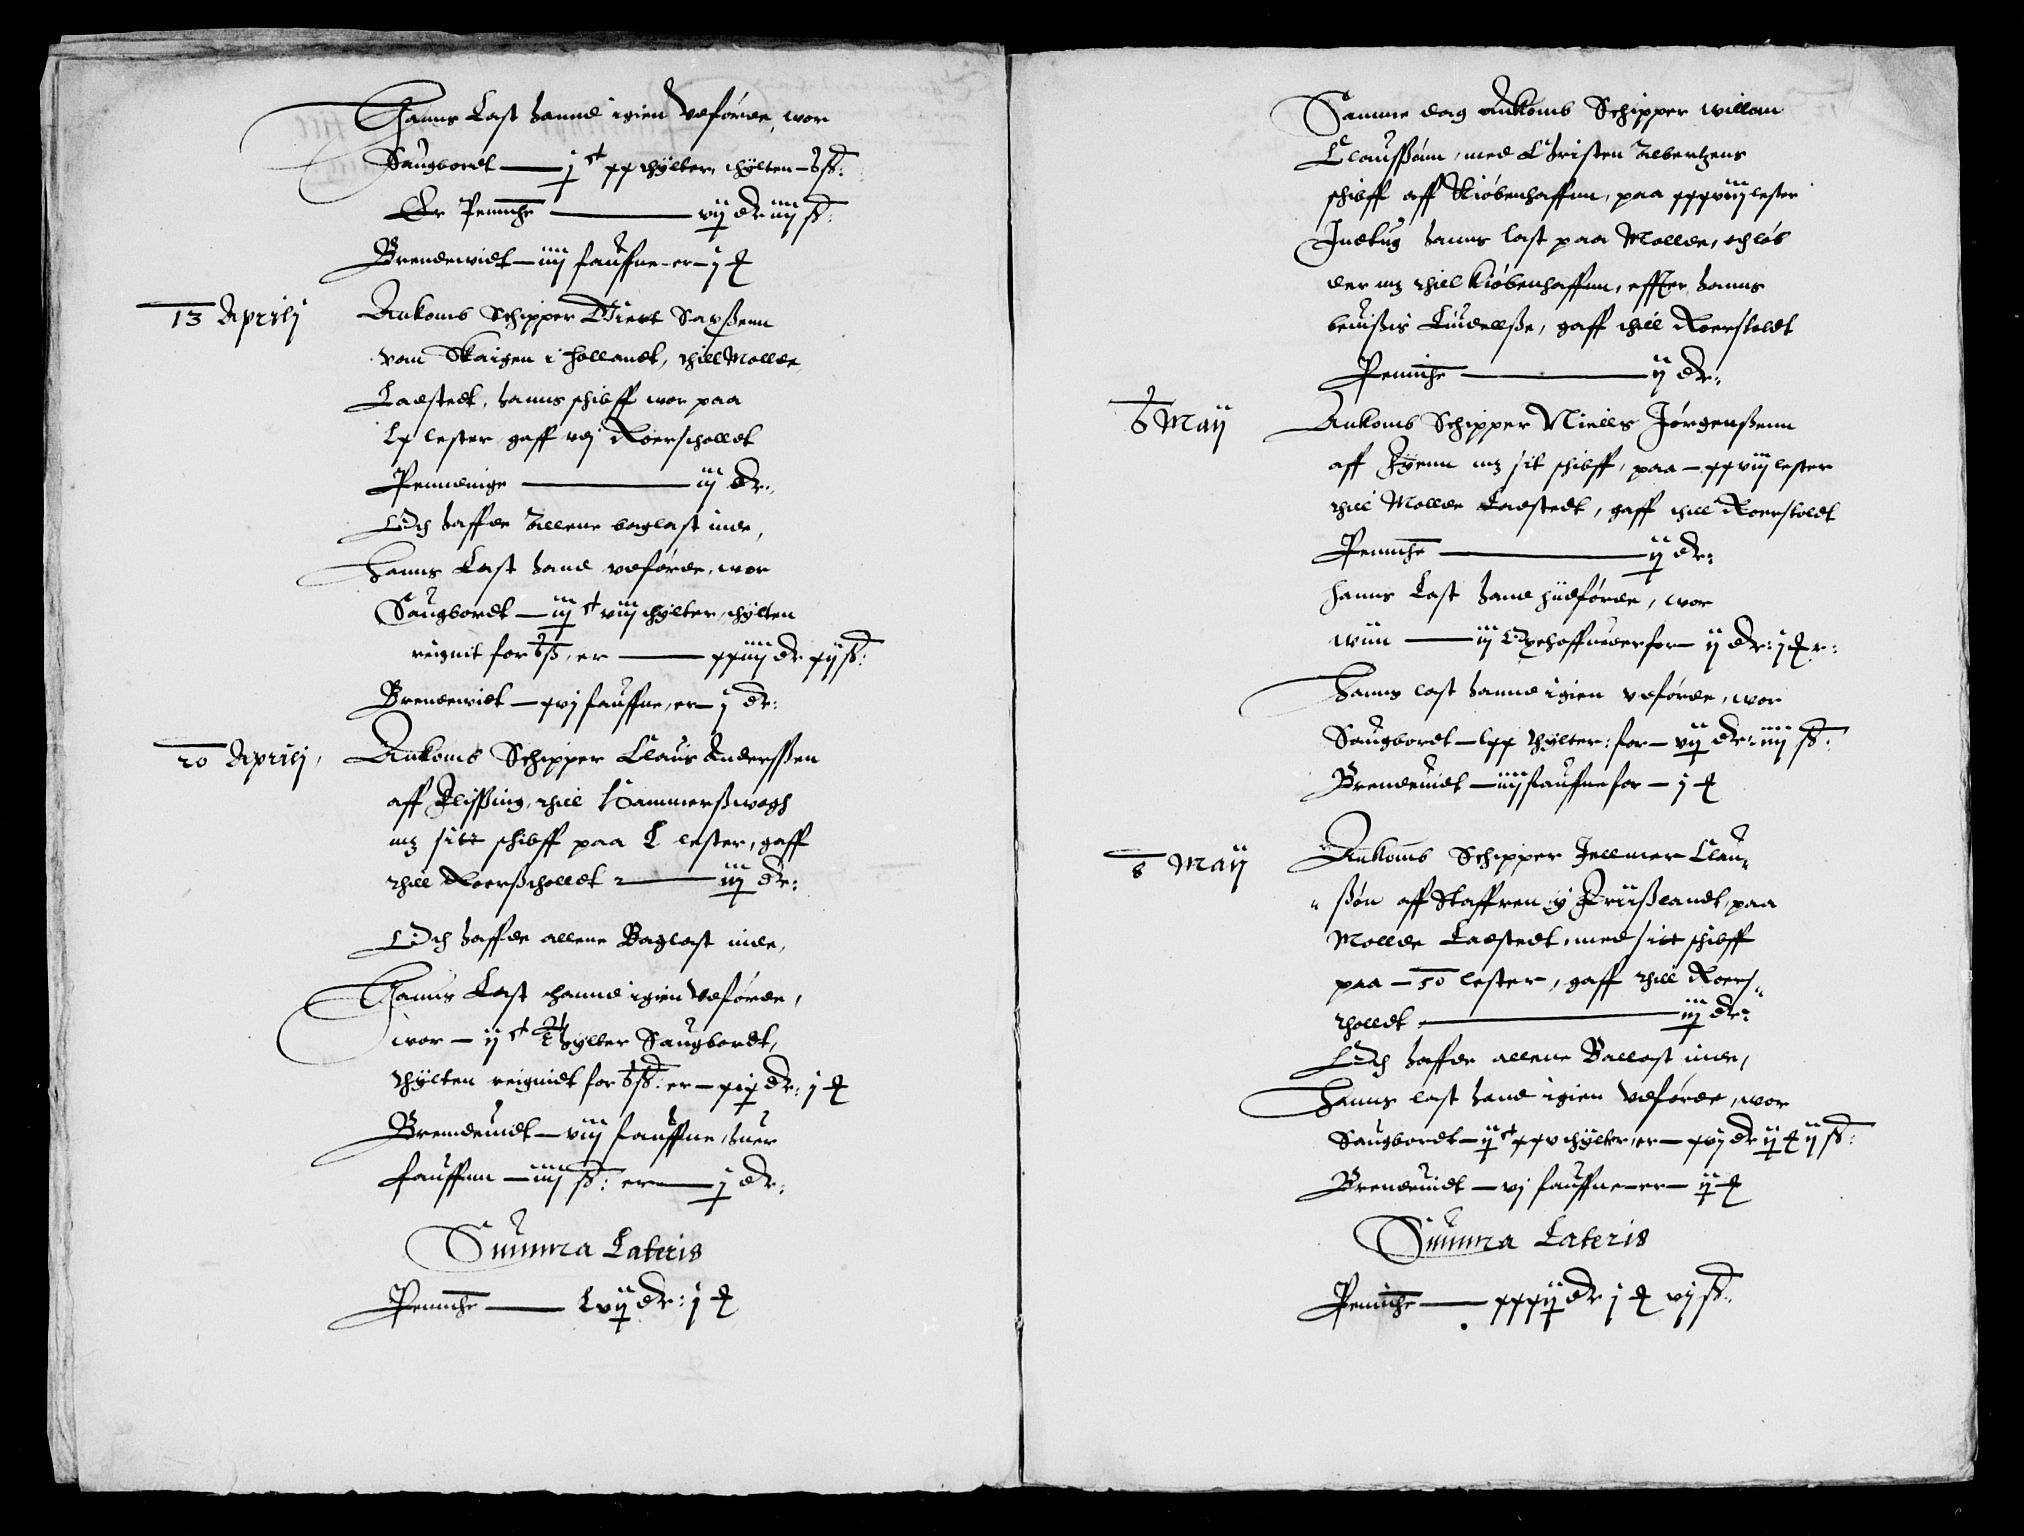 Hanns Last hannd igien Vdførde, wor
Saugbordt — j c xx thÿlter, thÿlten – 5 sß:
Er Peninche — vij dr iiij ß:
Brendewidt – iiij fauffne – er – j
13 Aprilj
Ankomb Schipper Diert Saxßenn
van Skaigen i Hollandt, thill Mollde
Ladstedt, hanns schibff wor paa
Lx lester gaff vdj Roerscholldt
Penndinge — iij dr:
Och haffde Allene baglast inde,
Hanns Last hand vdførde, wor
Saugbordt — iij c viij thÿlter, thÿlten
reignit for 5 ß, er — xxiiij dr xij ß:
Brendewidt — xvj fauffne, er – j dr:
20 Aprilj,
Ankomb Schipper Claus Anderssen
aff Flissing, thill Hammerßwogh
mz sitt schibff paa L lester, gaff
thill Roerßcholldt — iij dr:
Och haffde allene Baglast inde,
Hanns Last hannd igien Vdførde,
wor – ij c thÿlter Saugbordt,
thÿlten reignidt for 5 ß: er – xix dr: j
Brendeuidt – viij fauffne, huer
fauffnn – iiij ß: er — j dr:
Summa Lateris
Peninche — Lvij dr: j
Samme dag Ankomb Schipper willom
Claussøn, med Christen Albertzens
schibff aff Kiøbenhaffnn, paa xxxviij lester
Indtug hanns last paa Mollde, och løb
der mz thill Kiøbenhaffnn, effter hanns
beuißis Liudellße, gaff thill Roerstoldt
Peninche — ij dr:
5 Maÿ
Ankomb Schipper Niells Jørgenßenn
aff Fÿenn mz sit schibff, paa – xxviij lester
thill Mollde Ladstedt, gaff thill Roerstoldt
Peninche — ij dr:
Hanns Last hand hidførde, wor
wiin — iij Oxehoffueder for – ij dr: j r:
Hanns last hannd igien vdførde, wor
Saugbordt – lxx thÿlter: for – vij dr: iiij ß:
Brendeuidt – iiij fauffne for – j
8 Maÿ
Ankomb Schipper Jellmer Clau-
„ ßøn aff Staffren ÿ Friißlandt, paa
Mollde Ladstedt, med sitt schibff
paa – 50 lester, gaff thill Roers-
tholldt — iij dr:
Och haffde allene Ballast inde,
Hanns last hand igien Vdførde, wor
Saugbordt – ij c xxv thÿltr, er – xvj dr ij ij ß:
Brendeuidt – vj fauffne – er – ij
Summa Lateris
Peninche — xxxij dr j vj ß: